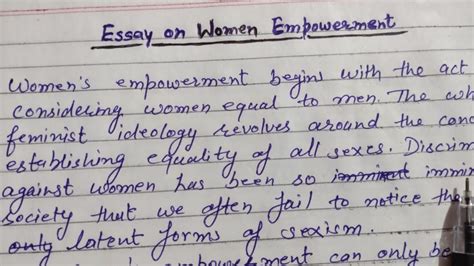 Essay on Women Empowerment
Women's empowerment begins with the act
considering women equal to men. The wh
feminist ideology revolves around the conc
establishing equality of all sexes. Discrim
against women has been so immin
society that we often fail to notice the
only latent forms of sexism.
ment can only be